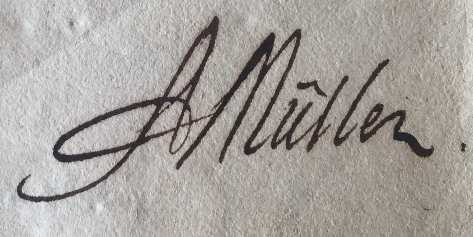 A Müller.